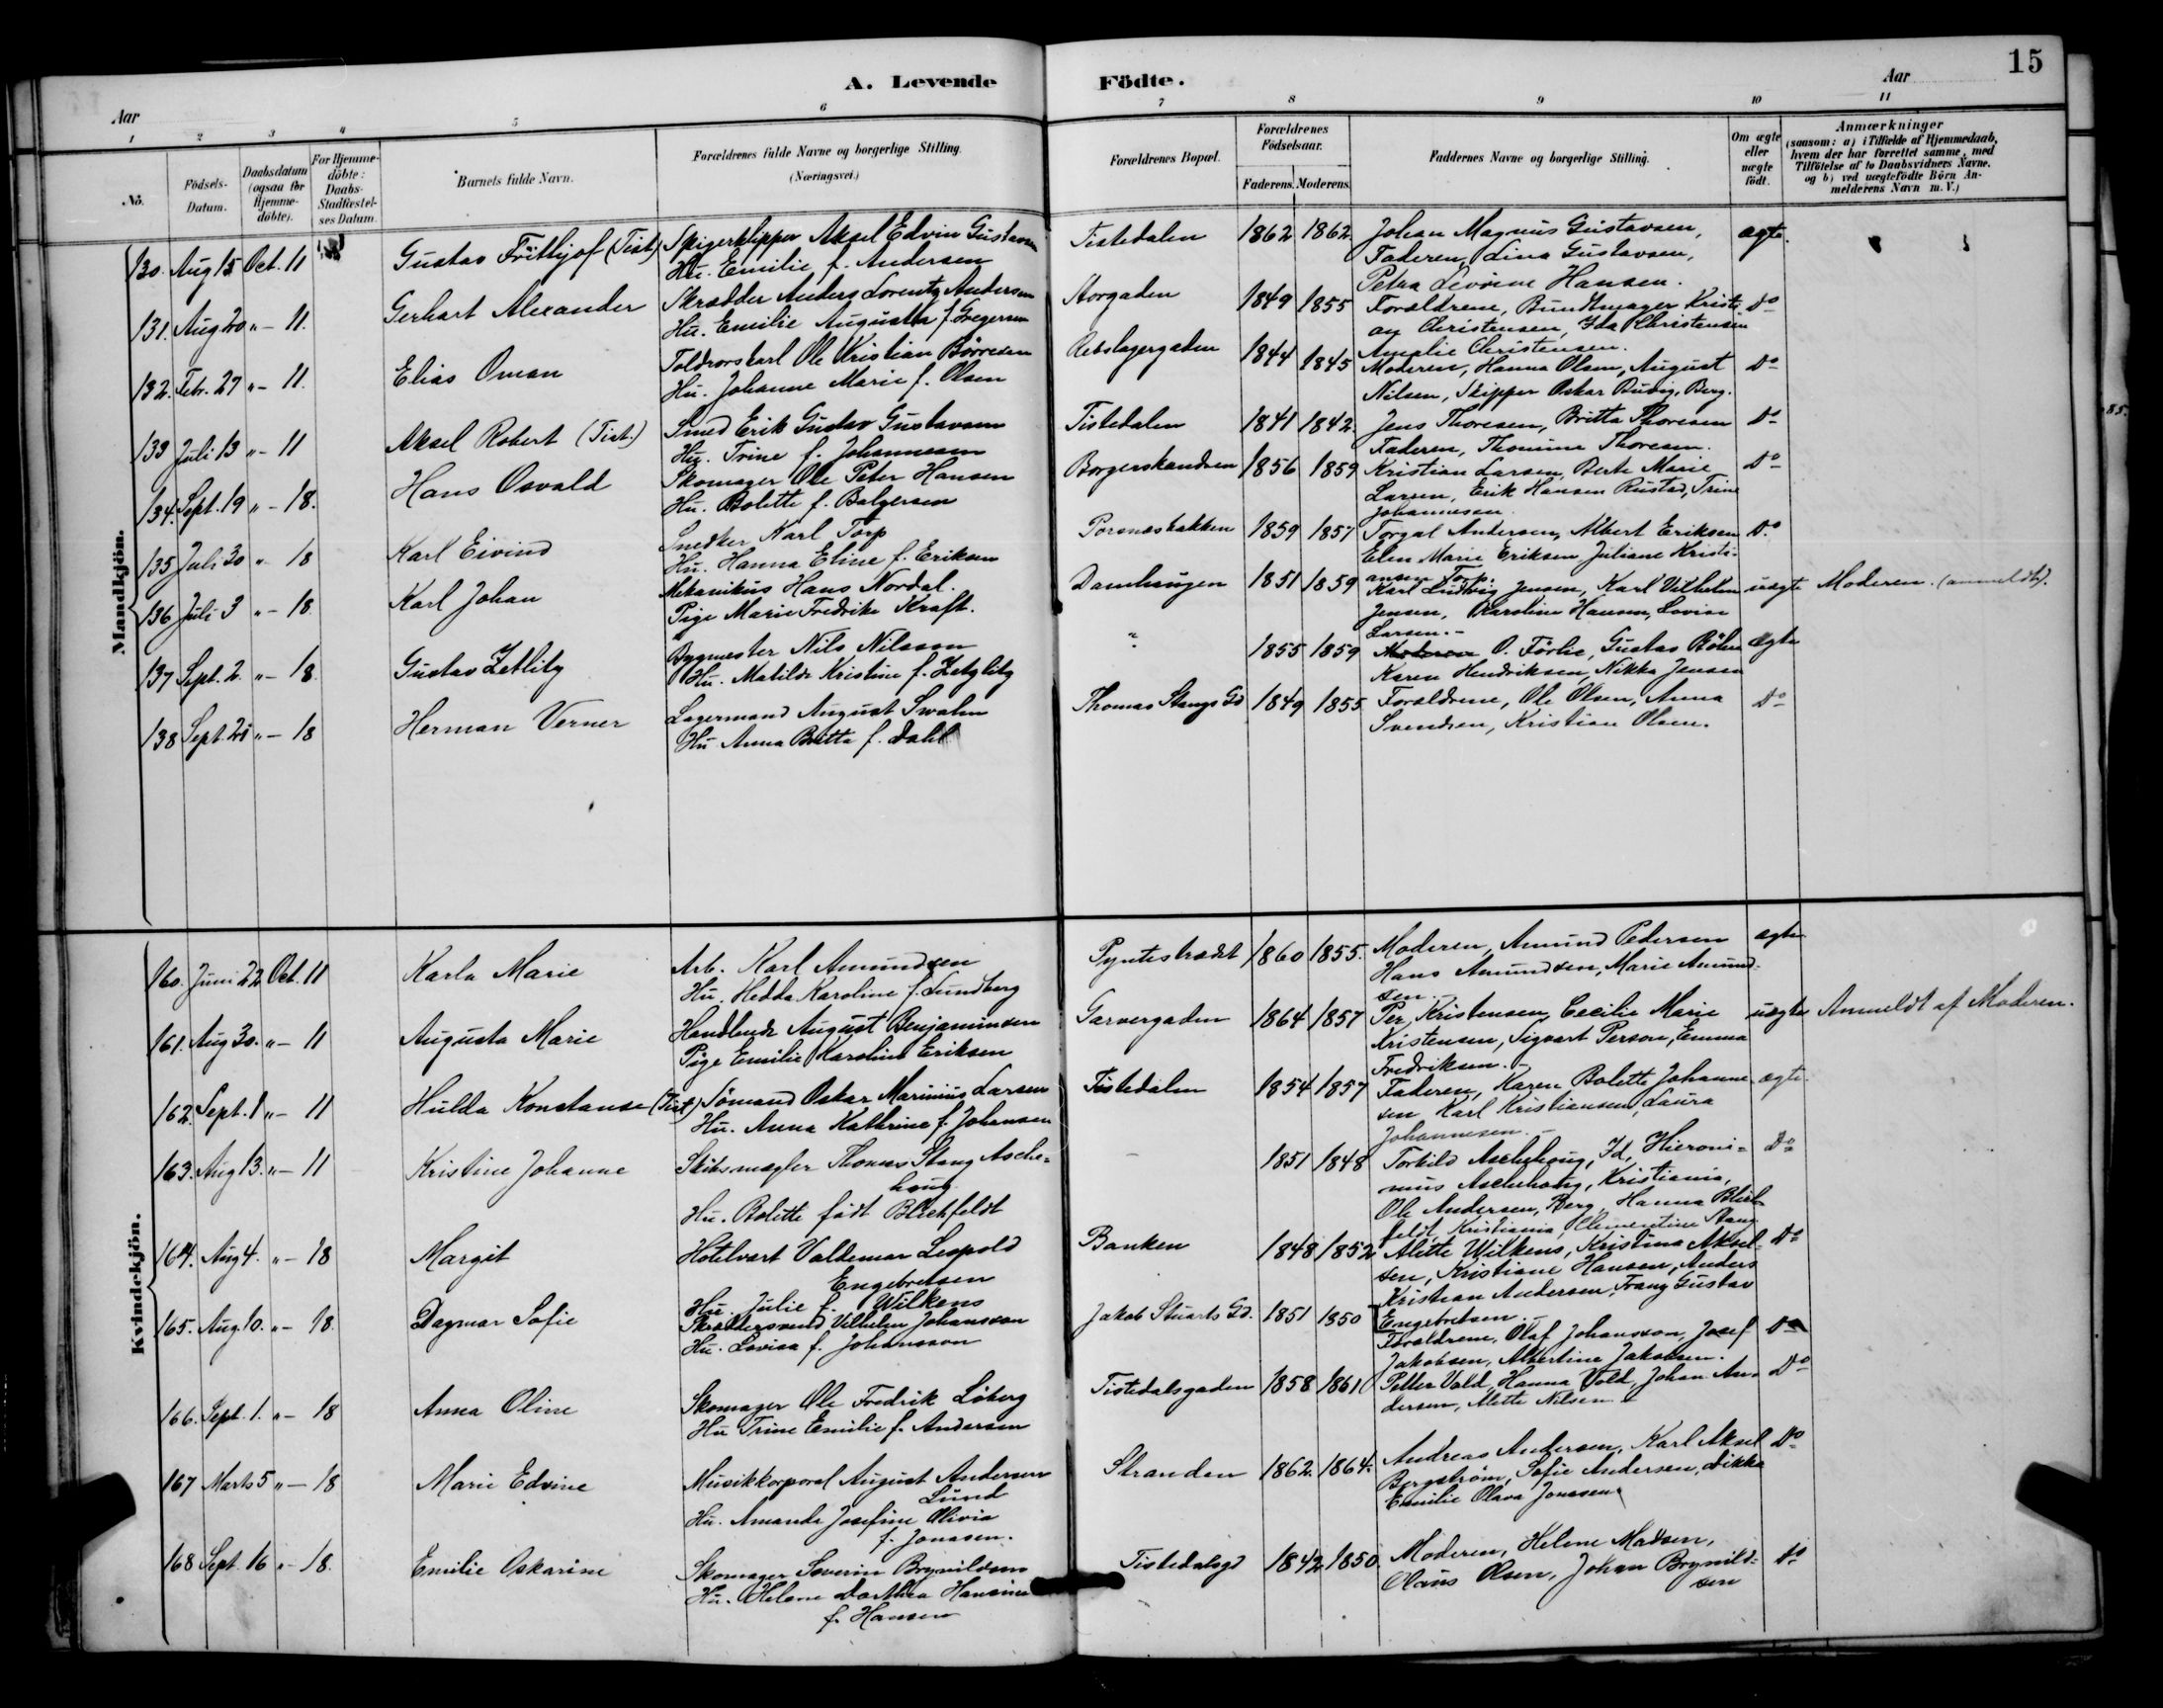 15
A. Levende Födte.
Aar
Aar
1 2 3 4 5 6 7 8 9 10 11
No.
Födsels-Datum.
Daabsdatum (ogsaa for Hjemme-döbte).
For Hjemme-döbte: Daabs-Stadfæstel-ses Datum.
Barnets fulde Navn.
Forældrenes fulde Navne og borgerlige Stilling. (Næringsvei.)
Forældrenes Bopæl.
Forældrenes Födselsaar.
Faderens. Moderens.
Faddernes Navne og borgerlige Stilling.
Om ægte eller uægte födt.
Anmærkninger (saasom: a) i Tilfælde af Hjemmedaab, hvem der har forrettet samme, med Tilföielse af to Daabsvidners Navne. og b) ved uægtefödte Börn An-melderens Navn m.V.)
Mandkjön.
130. Aug 15 Oct. 11 Gustav Frithjof (Tist.) Spigerklipper Aksel Edvin Gustavsen Tistedalen 1862 1862 Johan Magnus Gustavsen, ægte.
Hu. Emilie f. Andersen Faderen, Lina Gustavsen,
Petra Hansen.
131. Aug 20 " - 11. Gerhart Alexander Skrædder Anders Lorentz Andersen Storgaden 1849 1855 Forældrene, Bundtmager Kristi- Do
Hu. Emilie Augusta f. Gregersen an Christensen, Ida Christensen
Amalie Christensen.
132. Febr. 27 " - 11. Elias Oman Toldrorskarl Ole Kristian Börresen Rebslagergaden 1844 1845 Moderen, Hanna Olsen, August Do
Hu. Johanne Marie f. Olsen Nilsen, Skipper Oskar Berg.
133 Juli 13 " - 11 Aksel Robert (Tist.) Smed Erik Gustav Gustavsen Tistedalen 1841 1842 Jens Thoresen, Britta Thoresen Do
Hu. Trine f. Johannesen Faderen, Thomine Thoresen.
134. Sept. 19 " - 18. Hans Osvald Skomager Ole Peter Hansen Borgerskandsen 1856 1859 Kristian Larsen, Berte Marie Do
Hu. Bolette f. Larsen, Erik Hansen Rustad, Trine
Johannesen.
135 Juli 30 " - 18 Karl Eivind Snedker Karl Torp Porsnesbakken 1859 1857 Andersen, Albert Eriksen Do
Hu. Hanna Eline f. Eriksen Elen Marie Eriksen Juliane Kristi-
ansen Torp.
136 Juli 3 " - 18 Karl Johan Mekanikus Hans Nordal. Damhaugen 1851 1859 Karl Ludvig Jensen, Karl Vilhelm uægte Moderen. (anmeldt).
Pige Marie Fredrike Kraft. Jensen, Karoline Hansen, Lovise
Larsen. -
137 Sept. 2. " - 18. Gustav Zetlitz Bygmester Nils Nilsson " 1855 1859 O. Förlie, Gustav ægte
Hu. Matilde Kristine f. Zetzlitz Karen Hendriksen, Nikka Jensen
138 Sept 21 " - 18 Herman Verner Lagermand August Swalin Thomas Stangs Gd 1849 1855 Forældrene, Ole Olsen, Anna Do
Hu. Anna Britta f. Dahl Svendsen, Kristian Olsen.
Kvindekjön.
160. Juni 22 Oct. 11 Karla Marie Arb. Karl Amundsen 1860 1855. Moderen, Amund Pedersen ægte
Hu. Hedda Karoline f. Lundberg Hans Amundsen, Marie Amund-
sen -
161. Aug 30. " - 11 Augusta Marie August Benjaminsen Garvergaden 1864 1857 Per Kristensen, Cecilie Marie uægte Anmeldt af Moderen.
Pige Emilie Karoline Eriksen Kristensen, Sigvart Person, Emma
Fredriksen. -
162. Sept. 1 " - 11 Hulda Konstanse (Tist) Sömand Oskar Marinius Larsen Tistedalen 1854 1857 Faderen, Karen Bolette Johanne- ægte.
Hu. Anna Kathrine f. Johansen sen Karl Kristiansen, Laura
Johannesen. -
163. Aug 13. " - 11 Kristine Johanne Skibsmægler Thomas Stang Asche- - 1851 1848 Torkild Aschehoug, Id, Hieroni- Do
houg mus Aschehoug, Kristiania,
Hu. Bolette födt Blichfeldt Ole Andersen, Berg, Hanna Blich-
feldt, Kristiania, Clementine Stang
164. Aug 4. " - 18 Margit Hotelvært Valdemar Leopold Banken 1848 1852 Alette Wilkens, Kristina Aksel- Do
Engebretsen sen, Kristiane Hansen, Anders
Hu. Julie f. Wilkens Kristian Andersen, Franz Gustav
Engebretsen. -
165. Aug. 10. " - 18. Dagmar Sofie Skræddersvend Vilhelm Johansson Jakob Stuarts Gd. 1851 1850 Forældrene, Olaf Johansson, Josef Do
Hu. Lovisa f. Johansson Jakobsen, Albertine Jakobsen.
166. Sept. 1. " - 18 Anna Oline Skomager Ole Fredrik Löberg Tistedalsgaden 1858 1861 Petter Vold, Hanna Vold, Johan An- Do
Hu Trine Emilie f. Andersen dersen, Alette Nilsen
167 Marts 5 " - 18 Marie Edvine Musikkorporal August Andersen Stranden 1862. 1864. Andreas Andersen, Karl Aksel Do
Lund Bergström, Sofie Andersen, Dikka
Hu. Amanda Josefine Olivia Emilie Olava Jonassen.
f. Jonasen.
168 Sept. 16 " - 18. Emilie Oskarine Skomager Severin Brynildsen Tistedalsgd 1842 1850. Moderen, Helene Madsen, Do
Hu. Helene Dorthea Hansine Olaus Olsen, Johan Brynild-
f. Hansen sen